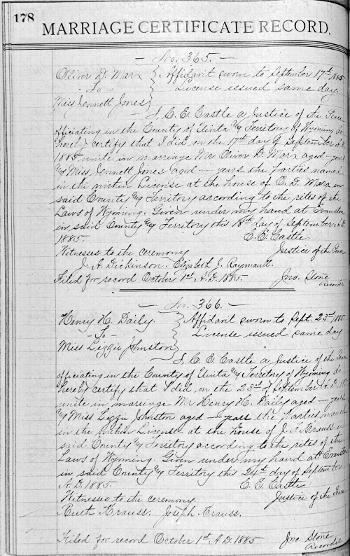 178
MARRIAGE CERTIFICATE RECORD.
— No. 365. —
Oliver D. Marx } Affidavit sworn to September 17th, 1885
to } License issued same day.
Miss Jennett Jones
I, C. E. Castle a Justice of the Peace
officiating in the County of Uinta & Territory of Wyoming do
hereby certify that I did, on the 17th day of September A.D.
1885 unite in marriage Mr. Oliver D. Marx, aged — years
& Miss Jennett Jones aged — years the parties named
in the within License at the house of O. D. Marx in
said County & Territory according to the rites of the
Laws of Wyoming. Given under my hand at Evanston
in said County & Territory this 18th day of September A.D.
1885. C. E. Castle
Witnesses to the ceremony Justice of the Peace
J. A. Dickinson. Elizabeth J.
Filed for record October 1st A.D. 1885. Jno. Stone
Recorder
— No. 366. —
Henry H. Daily } Affidavit sworn to Sept 23d, 1885
to } License issued same day
Miss Lizzie Johnston
I, C. E. Castle a Justice of the Peace
officiating in the County of Uinta & Territory of Wyoming do
hereby certify that I did, on the 23d of September A.D. 1885
unite in marriage Mr Henry H. Daily aged — years
& Miss Lizzie Johnston aged — years the parties named
in the within License at the house of J. Kruse in
said County & Territory according to the rites of the
Laws of Wyoming. Given under my hand at Evanston
in said County & Territory this 24th day of September
A.D. 1885. C. E. Castle
Witnesses to the ceremony Justice of the Peace
Joseph
Filed for record October 1st A.D. 1885 Jno Stone
Recorder